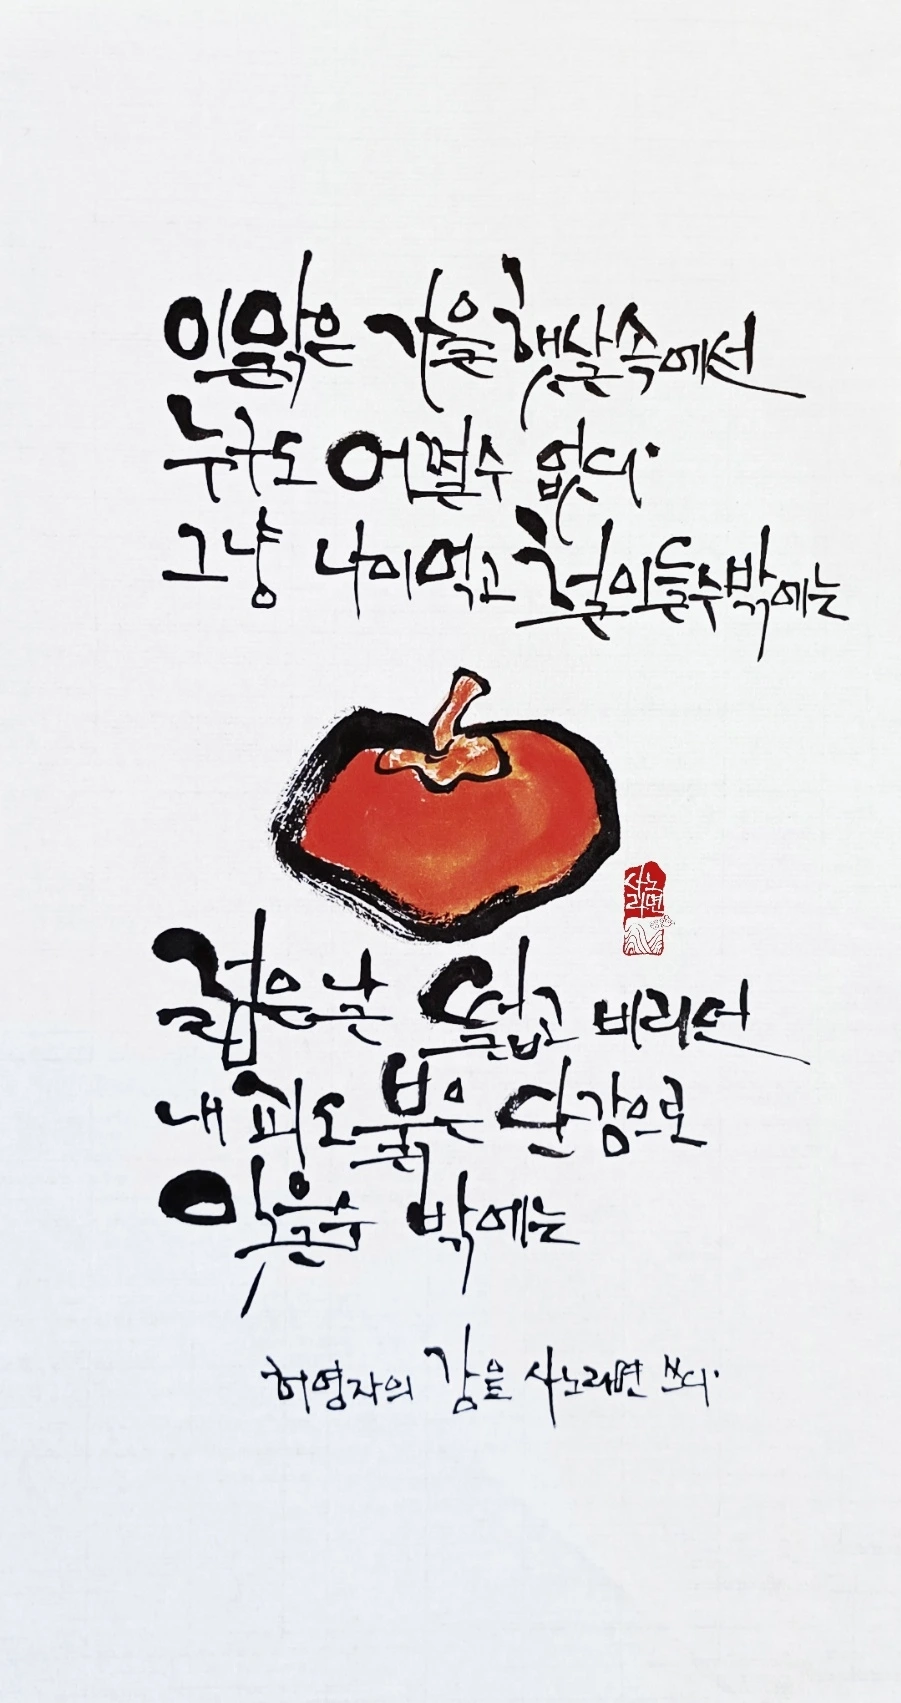 이 맑은 가을 햇살 속에선
누구도 어쩔수 없다.
그냥 나이 먹고 철이 들수밖에는
사노
라면
젊은날 떫고 비리던
내 피도 붉은 단감으로
익을수 밖에는
허영자의 감을 사노라면 쓰다.